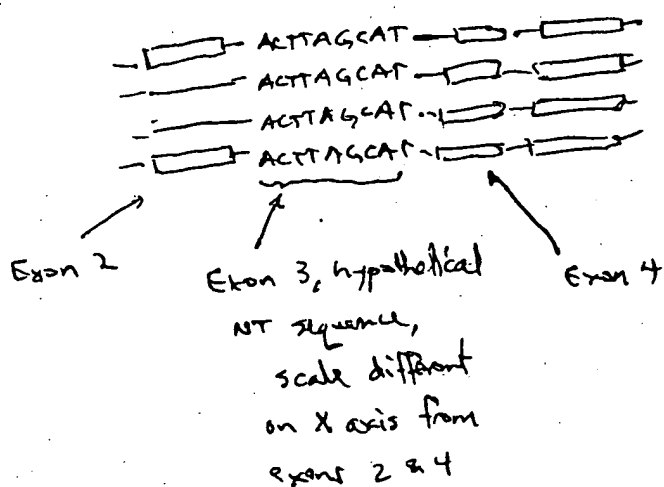 ACTTAGCAT
ACTTAGCAT
ACTTAGCAT
ACTTAGCAT
Exon 2
Exon 3, hypothetical
NT sequence,
scale different
on X axis from
exons 2 & 4
Exon 4